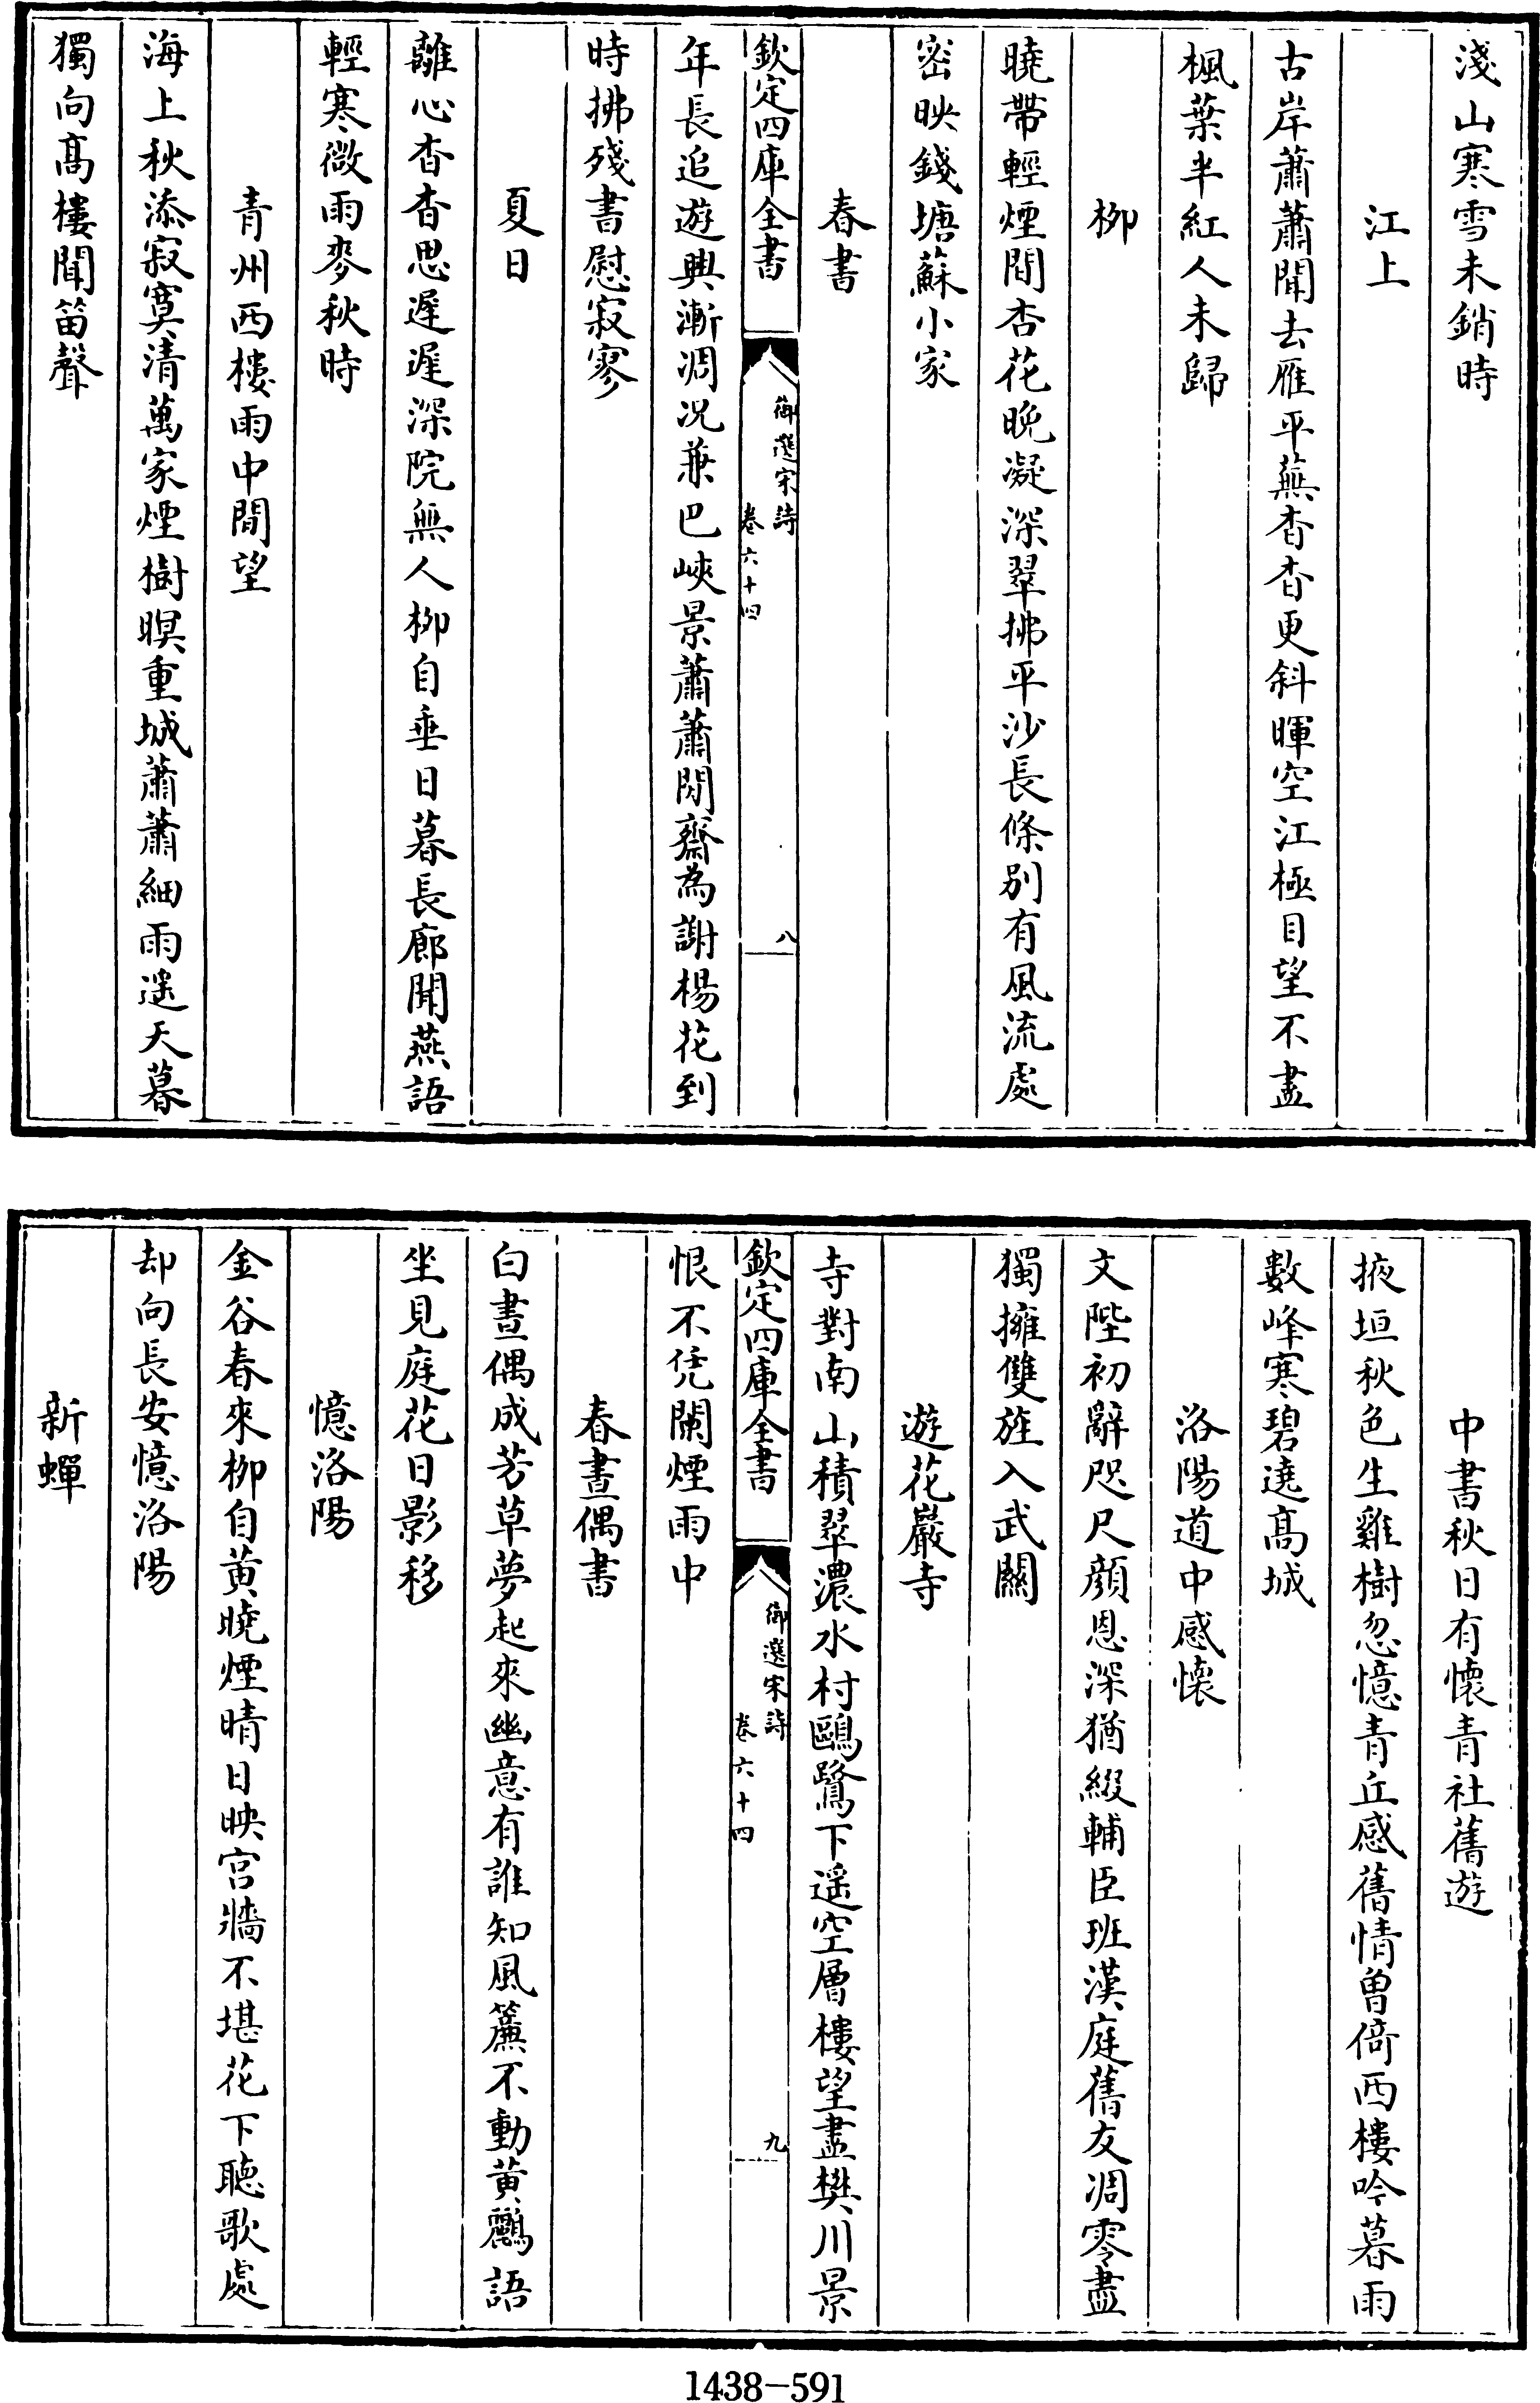 淺山寒雪未銷時
江上
古岸蕭蕭聞去雁平蕪杳杳更斜暉空江極目望不盡
楓葉半紅人未歸
柳
曉帶輕煙間杏花晚凝深翠拂平沙長條別有風流處
密映錢塘蘇小家
春書
欽定四庫全書
御選宋詩
卷六十四
八
年長追遊興漸凋况兼巴峽景蕭蕭閒齋為謝楊花到
時拂殘書慰寂寥
夏日
離心杳杳思遲遲深院無人柳自垂日暮長廊聞燕語
輕寒微雨麥秋時
青州西樓雨中閒望
海上秋添寂寞清萬家煙樹暝重城蕭蕭細雨遥天暮
獨向髙樓聞笛聲
中書秋日有懷青社舊遊
掖垣秋色生雞樹忽憶青丘感舊情曽倚西樓吟暮雨
數峰寒碧遶髙城
洛陽道中感懷
文陛初辭咫尺顔恩深猶綴輔臣班漢庭舊友凋零盡
獨擁雙旌入武關
遊花巖寺
寺對南山積翠濃水村鷗鷺下遥空層樓望盡樊川景
欽定四庫全書
御選宋詩
卷六十四
九
恨不凭闌煙雨中
春晝偶書
白晝偶成芳草夢起來幽意有誰知風簾不動黄鸝語
坐見庭花日影移
憶洛陽
金谷春來柳自黄曉煙晴日映宫牆不堪花下聽歌處
却向長安憶洛陽
新蟬
1438-591